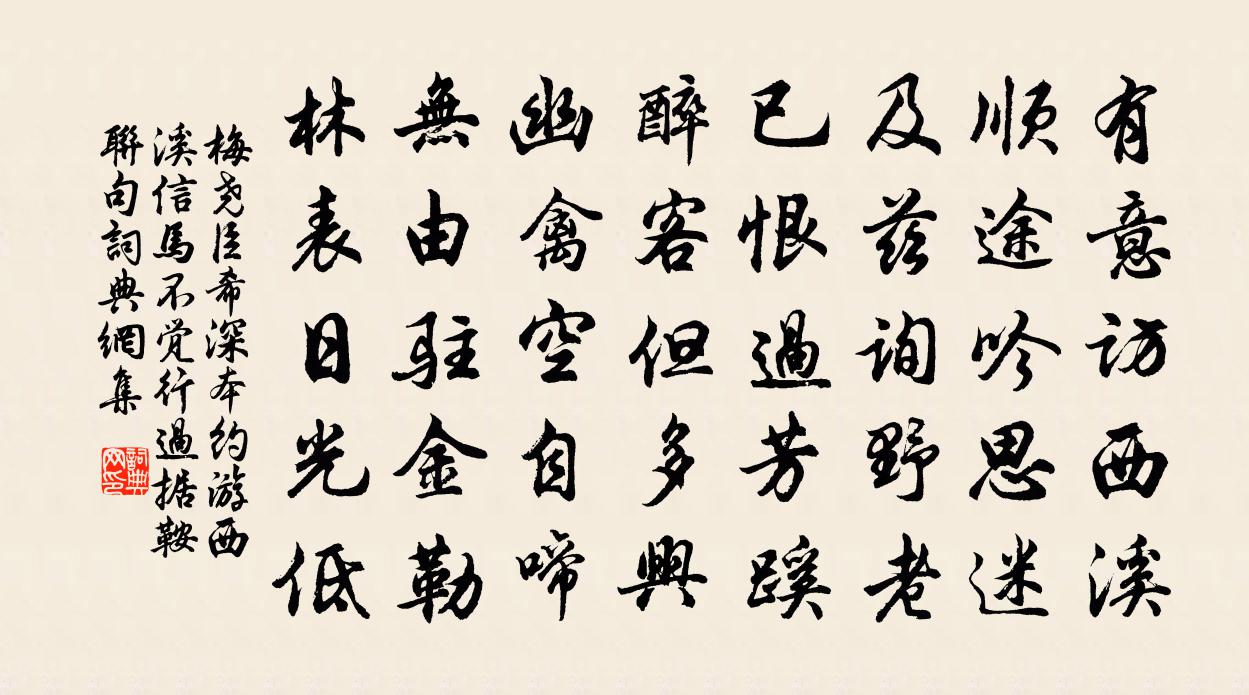 有意访西溪
顺途吟思迷
及兹询野老
已恨過芳蹊
醉客但多興
幽禽空自啼
無由駐金勒
林表日光低
梅尧臣希深本約游西
溪信馬不觉行過据鞍
聨句詞典網集
詞典
网印